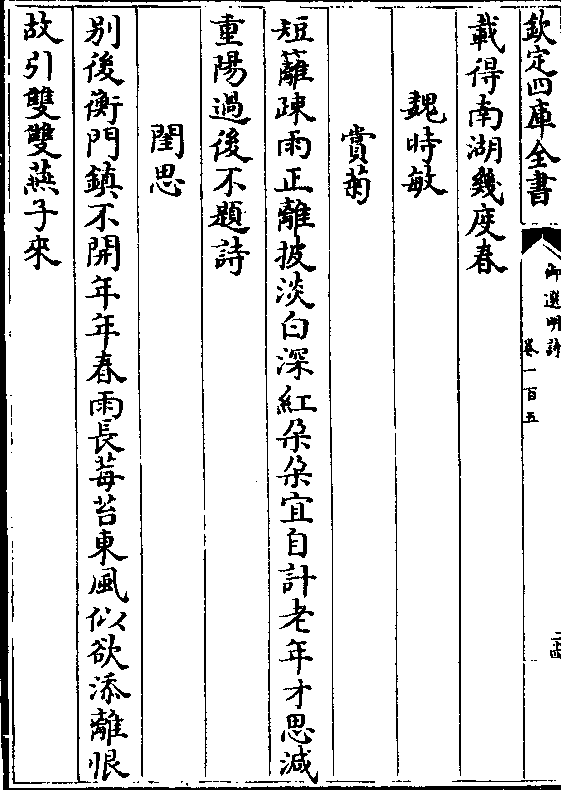 欽定四庫全書
御選明詩
卷一百五
二十四
載得南湖幾度春
魏時敏
賞菊
短籬疎雨正離披淡白深紅朵朵宜自計老年才思減
重陽過後不題詩
閨思
别後衡門鎮不開年年春雨長莓苔東風似欲添離恨
故引雙雙燕子來